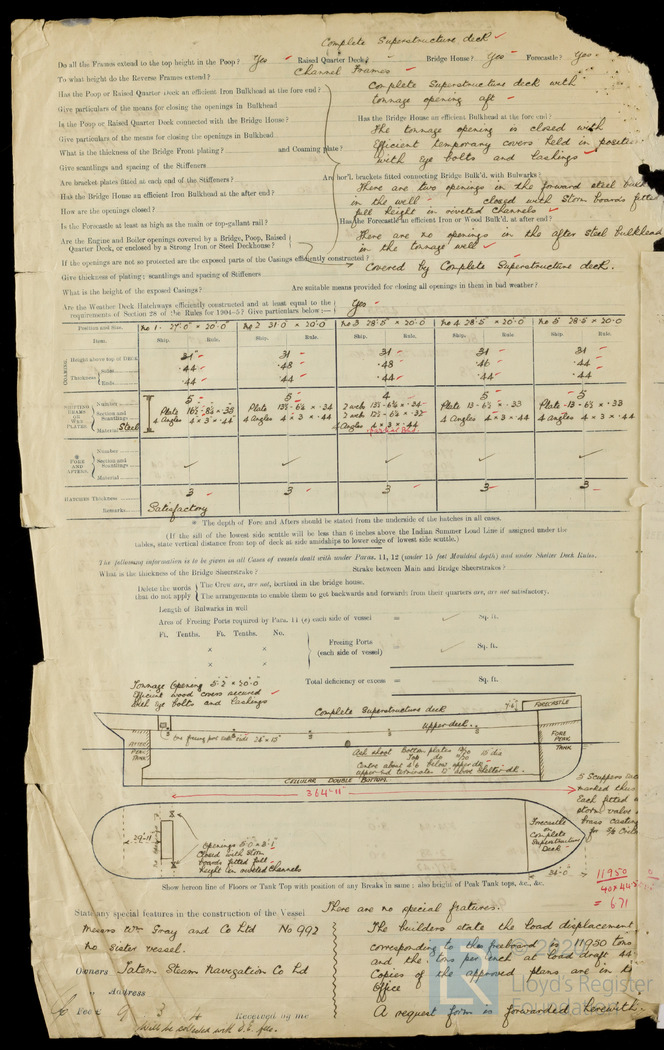 Complete Superstructure deck
Do all the Frames extend to the top height in the Poop? Yes Raised Quarter Deck? Bridge House? Yes Forecastle? Yes.
To what height do the Reverse Frames extend? Channel Frames
Has the Poop or Raised Quarter Deck an efficient Iron Bulkhead at the fore end? Complete Superstructure deck with
Give particulars of the means for closing the openings in Bulkhead tonnage opening aft
Is the Poop or Raised Quarter Deck connected with the Bridge House? Has the Bridge House an efficient Bulkhead at the fore end?
Give particulars of the means for closing the openings in Bulkhead The tonnage opening is closed with
What is the thickness of the Bridge Front plating? and Coaming plate? Efficient temporary covers held in position
Give scantlings and spacing of the Stiffeners with eye bolts and lashings
Are bracket plates fitted at each end of the Stiffeners? Are hor'l. brackets fitted connecting Bridge Bulk'd. with Bulwarks?
There are two openings in the forward steel
Has the Bridge House an efficient Iron Bulkhead at the after end? in the well closed with Storm boards fitted
How are the openings closed? full height in riveted Channels
Is the Forecastle at least as high as the main or top-gallant rail? Has the Forecastle an efficient Iron or Wood Bulk'd. at after end?
Are the Engine and Boiler openings covered by a Bridge, Poop, Raised There are no openings in the after steel bulkhead
Quarter Deck, or enclosed by a Strong Iron or Steel Deckhouse? in the tonnage well
If the openings are not so protected are the exposed parts of the Casings efficiently constructed?
Give thickness of plating; scantlings and spacing of Stiffeners Covered by Complete Superstructure deck.
What is the height of the exposed Casings? Are suitable means provided for closing all openings in them in bad weather?
Are the Weather Deck Hatchways efficiently constructed and at least equal to the Yes
requirements of Section 28 of the Rules for 1904-5? Give particulars below:—
Position and Size. No 1 - 27'0" × 20'0" No 2 31'0" × 20'0" No 3 28'5" × 20'0" No 4 28'5" × 20'0" No 5 28'5 × 20'0
Item. Ship. Rule. Ship. Rule. Ship. Rule. Ship. Rule. Ship. Rule.
COAMING. Height above top of DECK 31 31 31 31 31
Thickness Sides .44 .48 .48 .46 .44
Ends .44 .44 .44 .44 .44
SHIFTING BEAMS OR WEB PLATES. Number 5 5 4 5 5
Section and Scantlings Plate Plate 2 web Plate 13 - 6½ × .33 Plate 13 - 6½ × .33
2 web
Material Steel 4 Angles 4 × 3 × .44 4 Angles 4 × 3 × .44 4 Angles 4 × 3 × .44 4 Angles 4 × 3 × .44 4 Angles 4 × 3 × .44
* FORE AND AFTERS. Number
Section and Scantlings
Material
HATCHES Thickness 3 3 3 3 3
Remarks Satisfactory
* The depth of Fore and Afters should be stated from the underside of the hatches in all cases.
(If the sill of the lowest side scuttle will be less than 6 inches above the Indian Summer Load Line if assigned under the
tables, state vertical distance from top of deck at side amidships to lower edge of lowest side scuttle.)
The following information is to be given in all Cases of vessels dealt with under Paras. 11, 12 (under 15 feet Moulded depth) and under Shelter Deck Rules.
What is the thickness of the Bridge Sheerstrake? Strake between Main and Bridge Sheerstrakes?
Delete the words The Crew are, are not, berthed in the bridge house.
that do not apply The arrangements to enable them to get backwards and forwards from their quarters are, are not satisfactory.
Length of Bulwarks in well
Area of Freeing Ports required by Para. 11 (e) each side of vessel = Sq. ft.
Ft. Tenths. Ft. Tenths. No.
× × Freeing Ports
(each side of vessel) Sq. ft.
× ×
Tonnage Opening 5'2" × 20'0" Total deficiency or excess = Sq. ft.
Efficient wood covers secured
with eye bolts and lashings
Complete Superstructure deck 7'6" FORECASTLE
Upper deck
One freeing port each side 26" × 15"
AFTER PEAK TANK
FORE PEAK TANK
Ash shoot Bottom plates
Top do
Centre about 4'6 below upper dk
upper end terminates 12" above Shelter dk.
CELLULAR DOUBLE BOTTOM
364'11"
5 Scuppers
marked thus
Each fitted
storm valve
brass casting
29'11
Openings 5'0" × 3'1"
Closed with storm
boards fitted full
height in riveted channels
Forecastle
Complete
Superstructure
Deck
34'0"
11950
40×44.5
= 671
Show hereon line of Floors or Tank Top with position of any Breaks in same; also height of Peak Tank tops, &c., &c.
State any special features in the construction of the Vessel There are no special features.
Messrs Wm Gray and Co Ltd No 992 The builders state the load displacement
No Sister vessel. corresponding to the freeboard is 11950 tons
and the tons per inch at load draft 44
Owners Tatem Steam Navigation Co Ld Copies of the approved plans are in the
" Address Office
Fee £ 9 3 Received by me A request form is forwarded herewith.
Will be collected with S.E. fees.
© 2020
LR
Lloyd's Register
Foundation